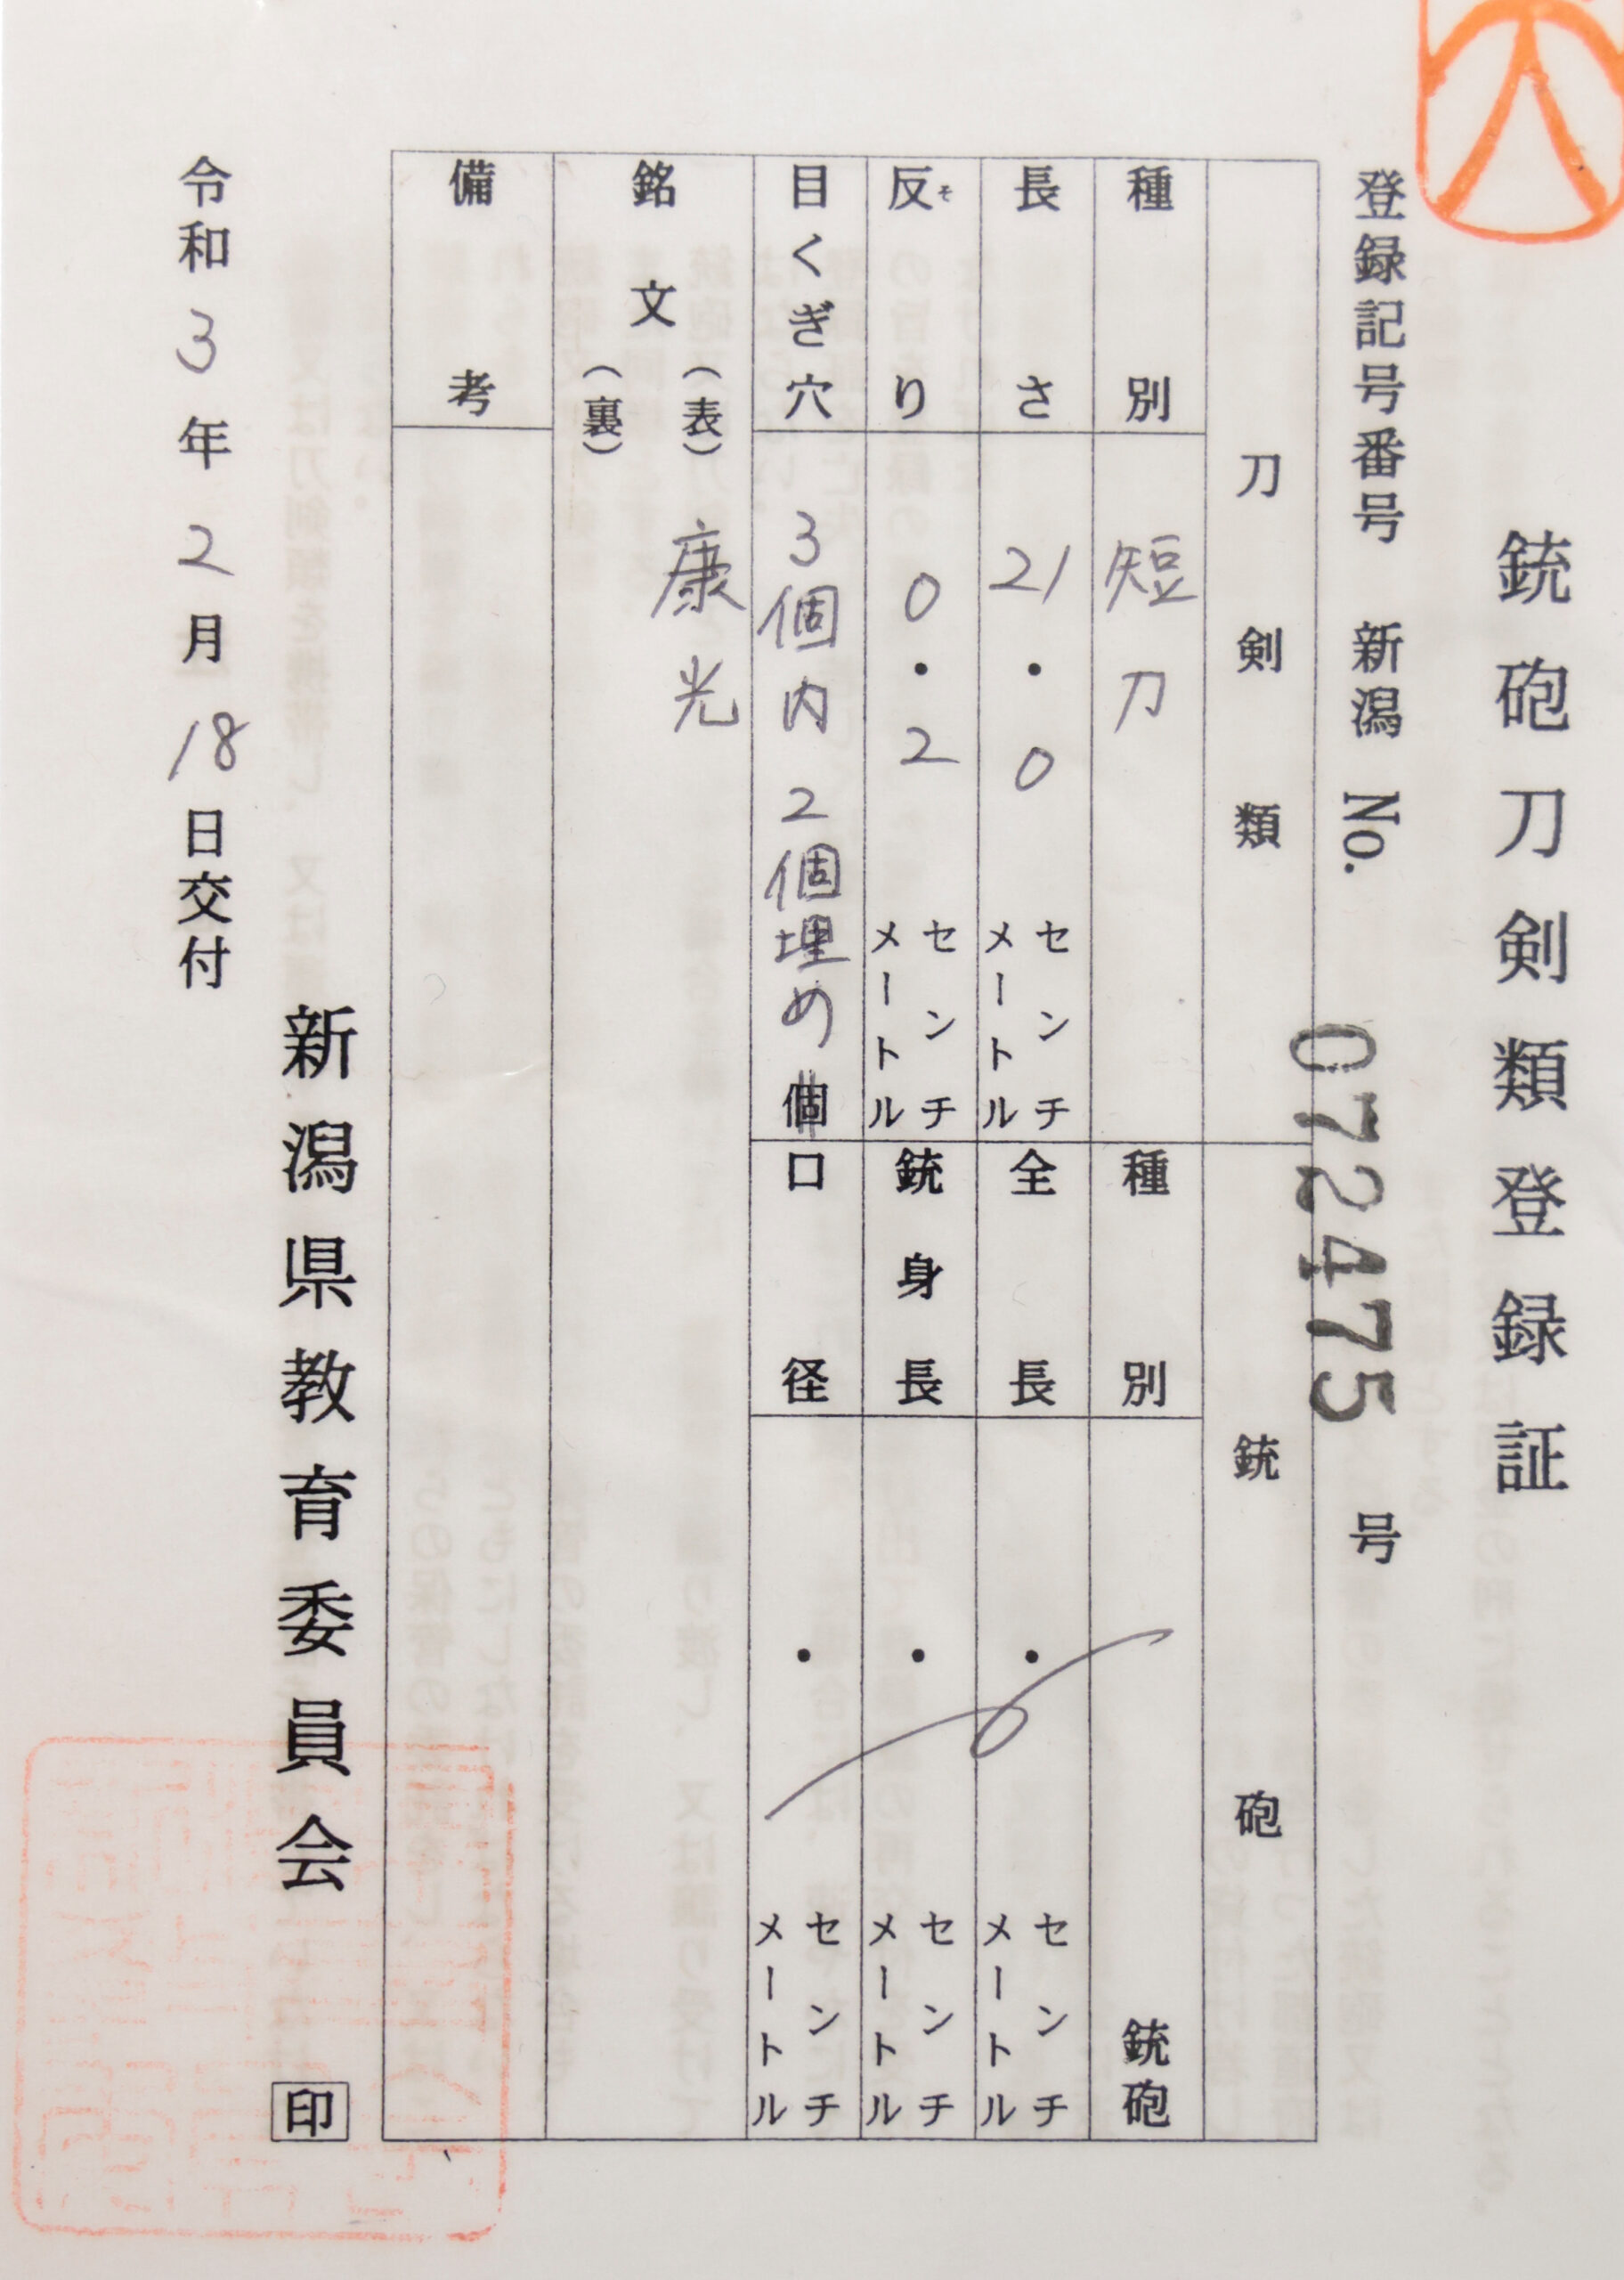 銃砲刀剣類登録証
登録記号番号 新潟 No. 072475 号
刀剣類
種別 短刀
長さ 21.0 センチメートル
反り 0.2 センチメートル
そ
目くぎ穴 3個内2個埋め 個
銘文 (表) 康光
(裏)
備考
銃砲
種別 銃砲
全長 ・ センチメートル
銃身長 ・ センチメートル
口径 ・ センチメートル
令和3年2月18日交付
新潟県教育委員会 印